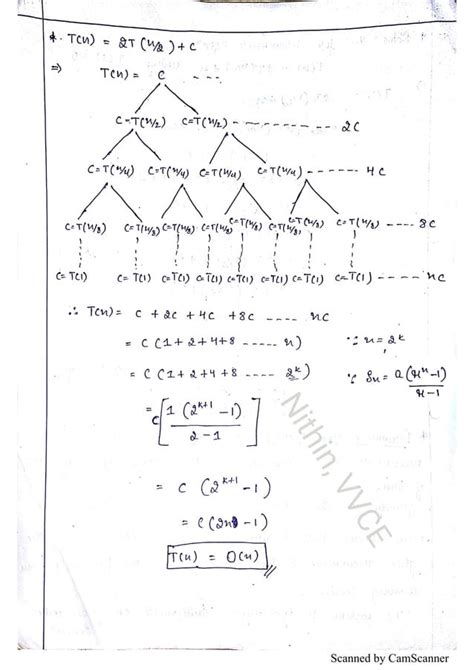 4. T(n) = 2T(n/2) + C
⇒ T(n) = C ----
C=T(n/2) C=T(n/2) ---------- 2C
C=T(n/4) C=T(n/4) C=T(n/4) C=T(n/4) ------ 4C
C=T(n/8) C=T(n/8) C=T(n/8) C=T(n/8) C=T(n/8) C=T(n/8), C=T(n/8) C=T(n/8) ---- 8C
C=T(1) C=T(1) C=T(1) C=T(1) C=T(1) C=T(1) C=T(1) C=T(1) ---- nC
∴ T(n) = C + 2C + 4C + 8C ---- nC
= C (1+2+4+8 ----- n) ∵ n = 2^k
= C (1+2+4+8 ----- 2^k) ∵ Sn = a(r^n-1)/r-1
= C [1 (2^(k+1) - 1)/2-1]
= C (2^(k+1) - 1)
= C (2n - 1)
T(n) = O(n)
Nithin, VVCE
Scanned by CamScanner